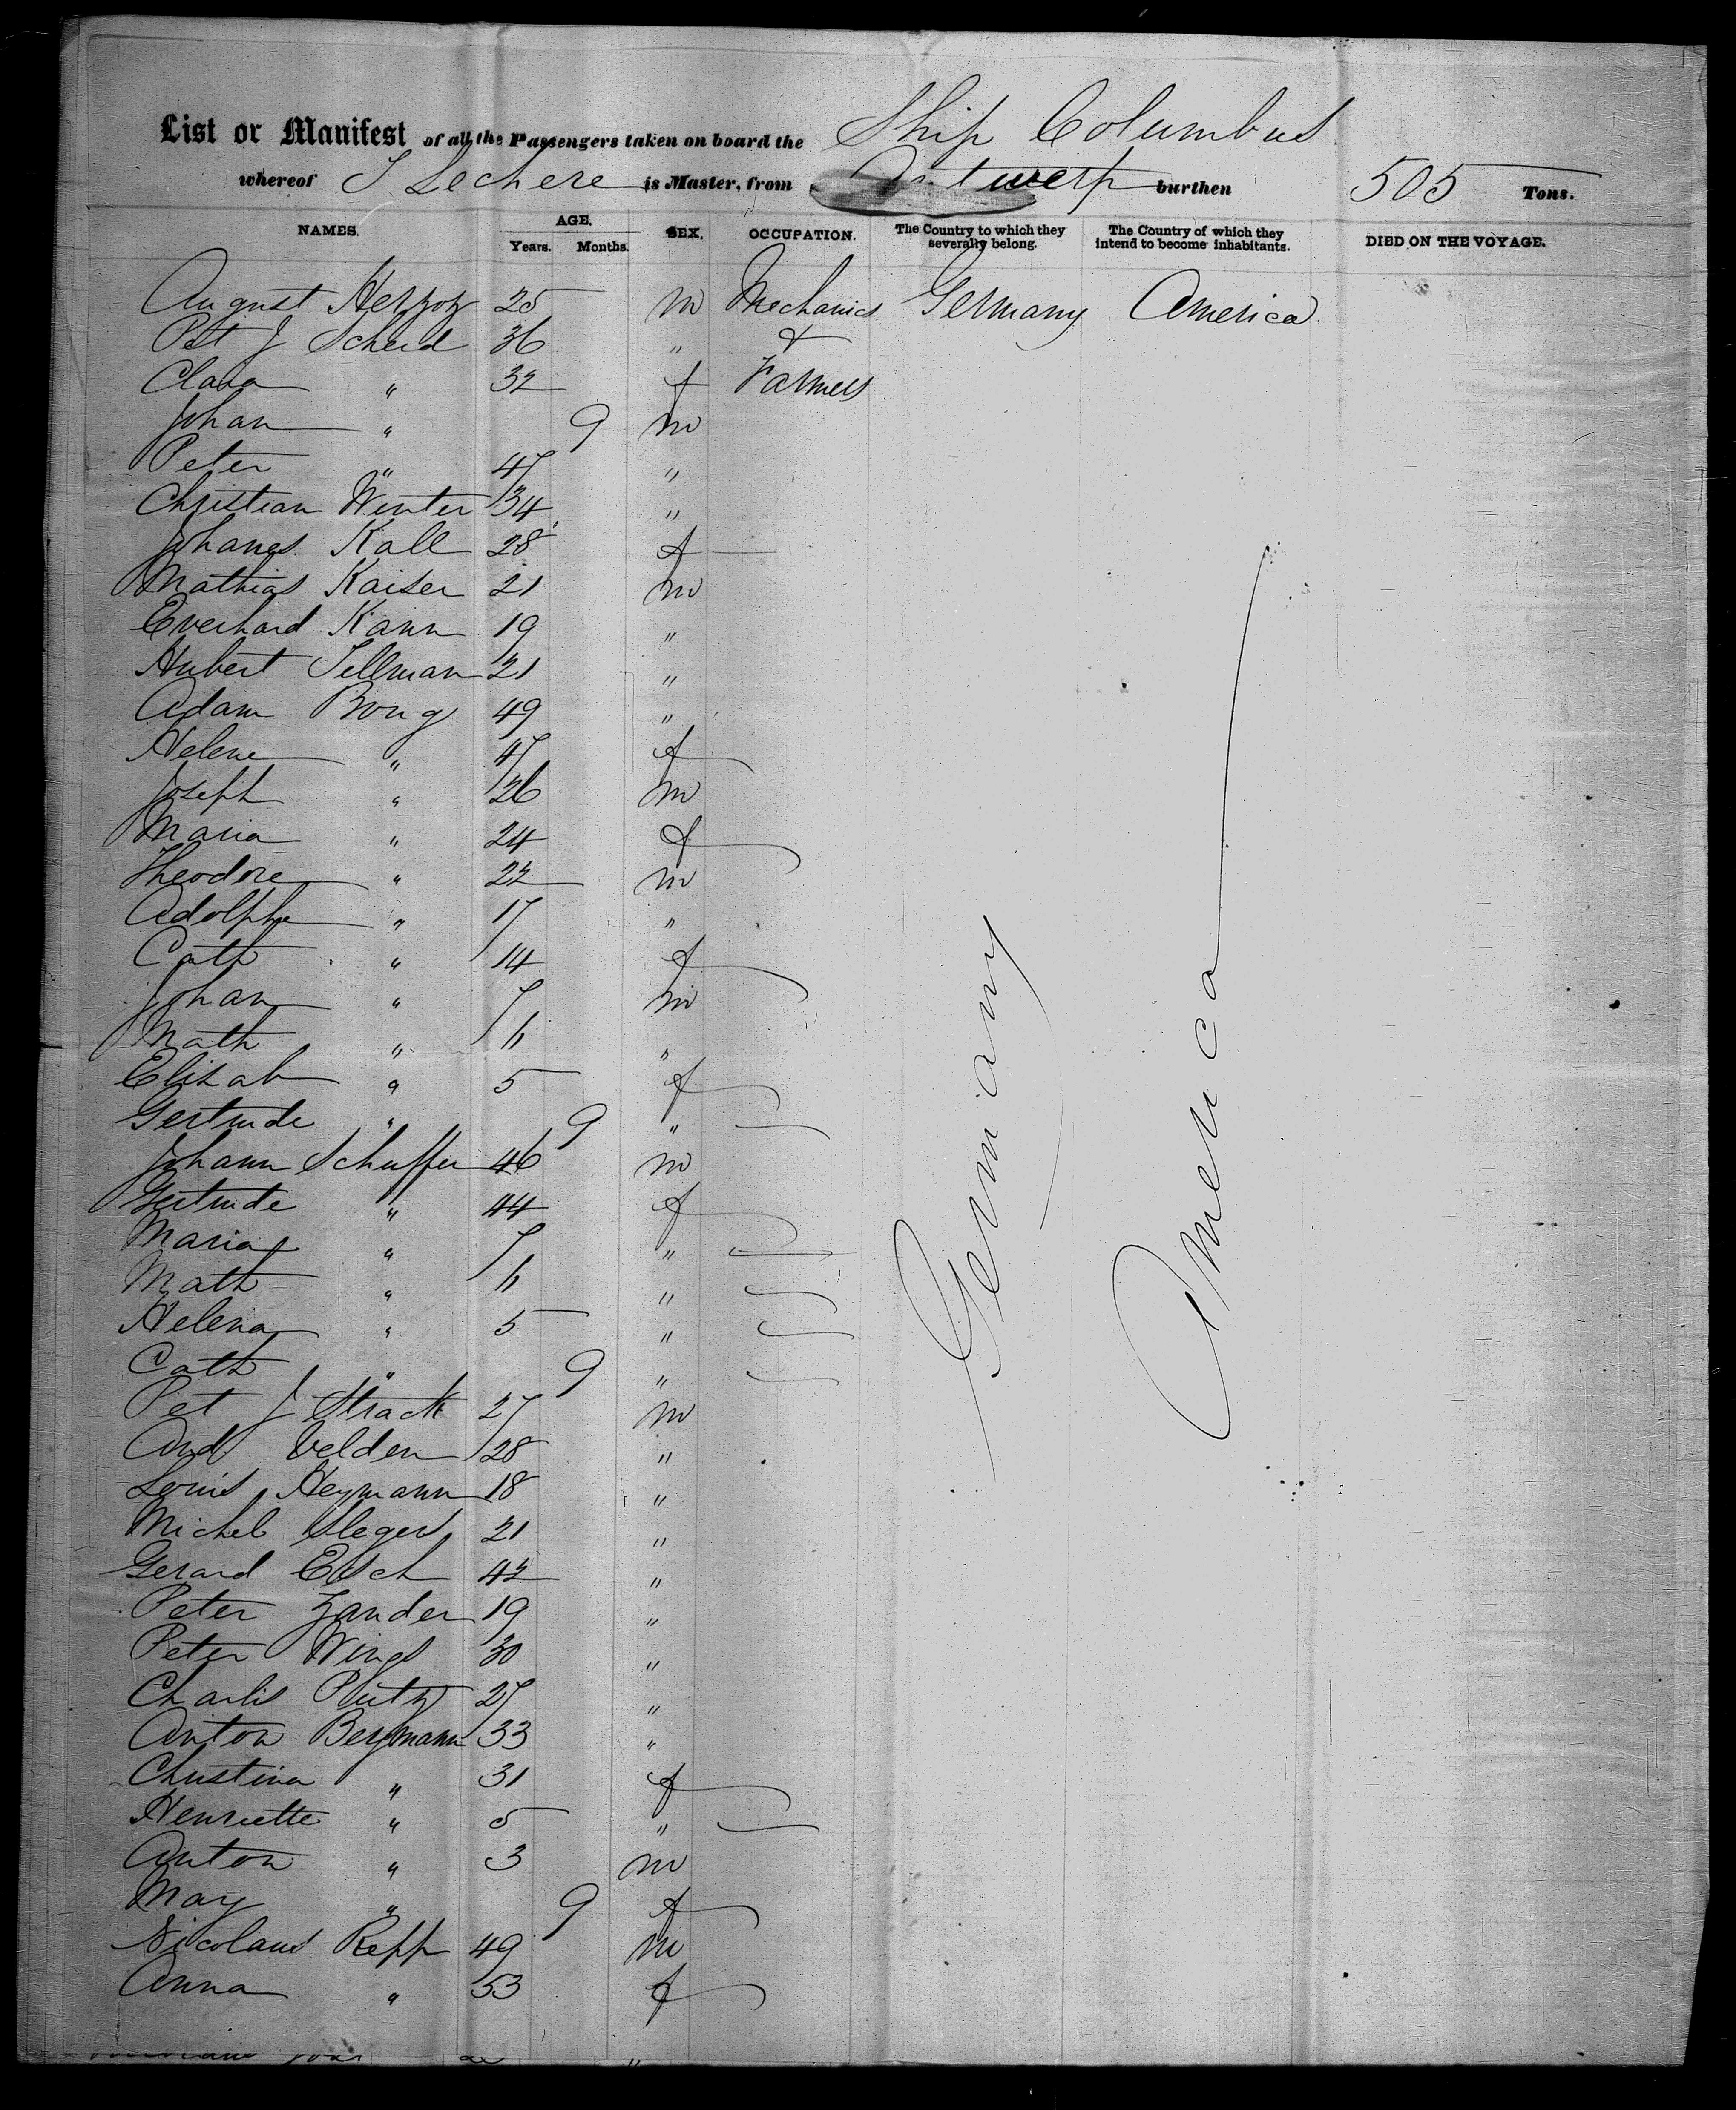 List or Manifest of all the Passengers taken on board the Ship Columbus
whereof J Lechere is Master, from Antwerp burthen 505 Tons.
NAMES. AGE. Years. Months. SEX. OCCUPATION. The Country to which they severally belong. The Country of which they intend to become inhabitants. DIED ON THE VOYAGE.
August Herzog 25 m Mechanics Germany America
Pet J Scheid 36 " &
Clara " 32 f Farmers
Johan " 9 m
Peter " 47 "
Christian Winter 34 "
Johanes Kall 28 f
Mathias Kaiser 21 m
Everhard Kann 19 "
Hubert Tillman 21 "
Adam Bong 49 "
Helene " 47 f
Joseph " 26 m
Maria " 24 f
Theodore " 22 m
Adolphe " 17 "
Cath " 14 f
Johan " 7 m
Math " 6 "
Elisab " 5 f
Gertrude " 9 "
Johann Schuffer 46 m
Gertrude " 44 f
Maria " 7 "
Math " 6 "
Helena " 5 "
Cath " 9 "
Pet J Strack 27 m
And Velden 28 "
Louis Heymann 18 "
Michel Sleger 21 "
Gerard Esch 42 "
Peter Zander 19 "
Peter Wings 30 "
Charlis Plutz 27 "
Anton Bergmann 33 "
Christina " 31 f
Henriette " 5 "
Anton " 3 m
May " 9 f
Nicolaus Repp 49 m
Anna " 53 f
Germany
America